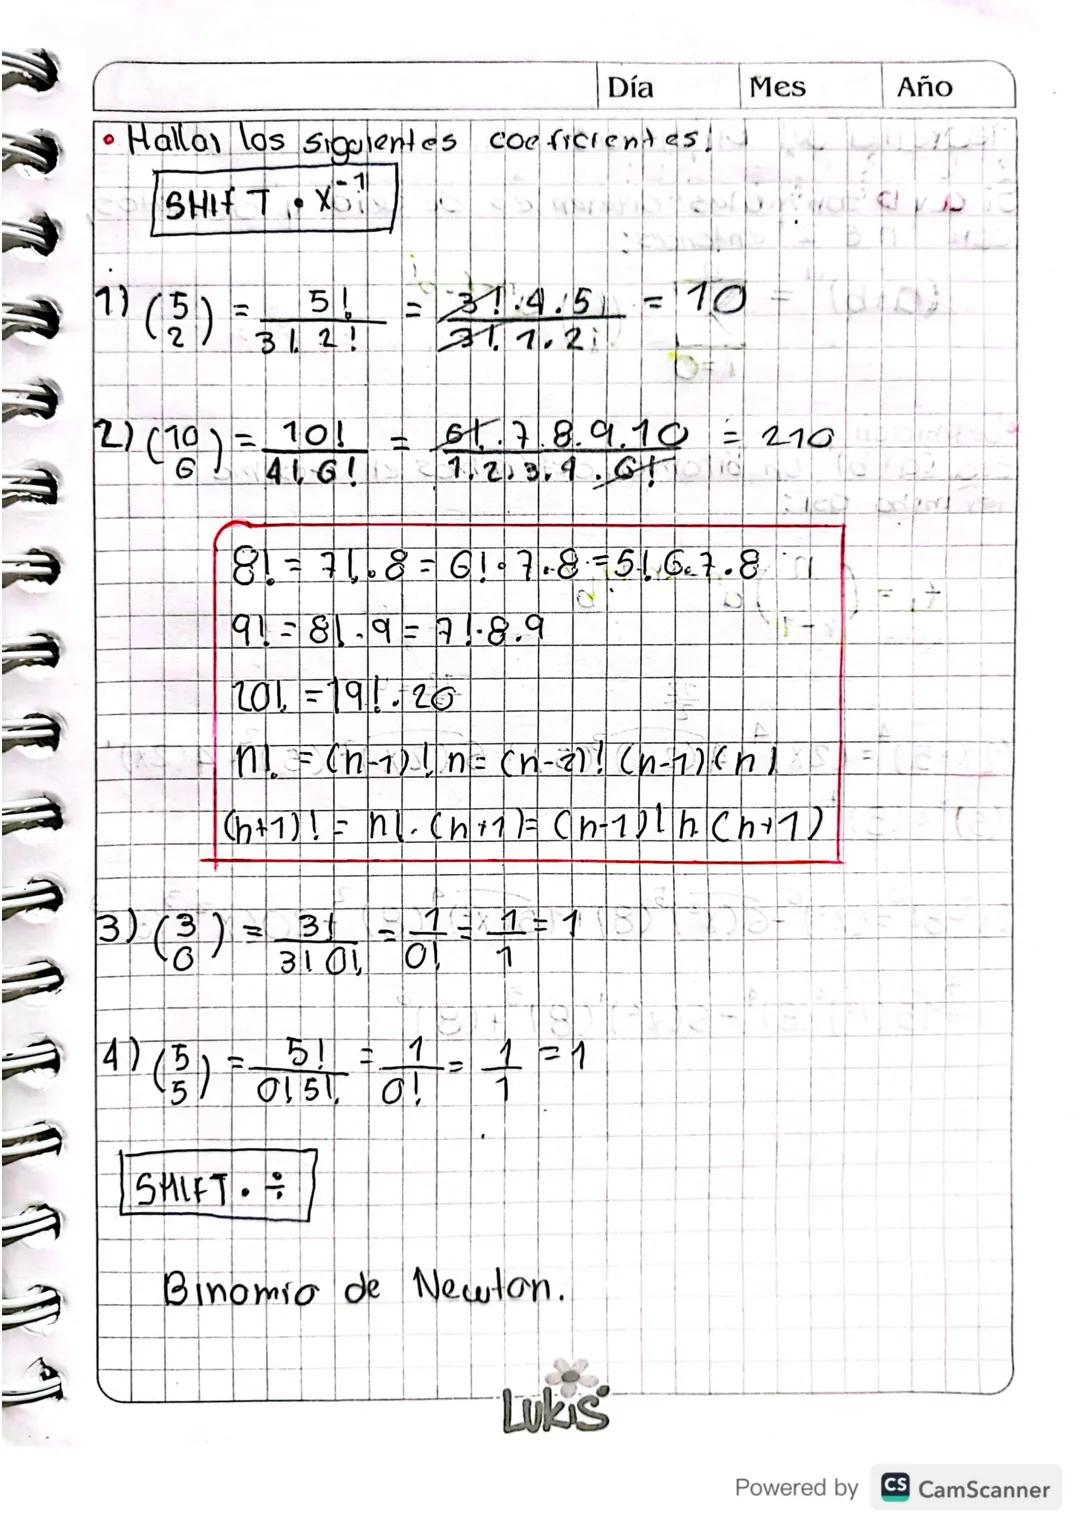 Día Mes Año
• Hallar los siguientes coeficientes!
SHIFT • x⁻¹
1) (5 2) = 5! / 3!. 2! = 3!.4.5 / 3!.1.2 = 10
2) (10 6) = 10! / 4!.6! = 6!.7.8.9.10 / 1.2.3.4.6! = 210
8! = 7!.8 = 6!.7.8 = 5!.6.7.8
9! = 8!.9 = 7!.8.9
20! = 19!.20
n! = (n-1)! n = (n-2)! (n-1)(n)
(n+1)! = n!.(n+1) = (n-1)! n (n+1)
3) (3 0) = 3! / 3! 0! = 1 / 0! = 1 / 1 = 1
4) (5 5) = 5! / 0! 5! = 1 / 0! = 1 / 1 = 1
SHIFT • ÷
Binomio de Newton.
LUKIS
Powered by CS CamScanner